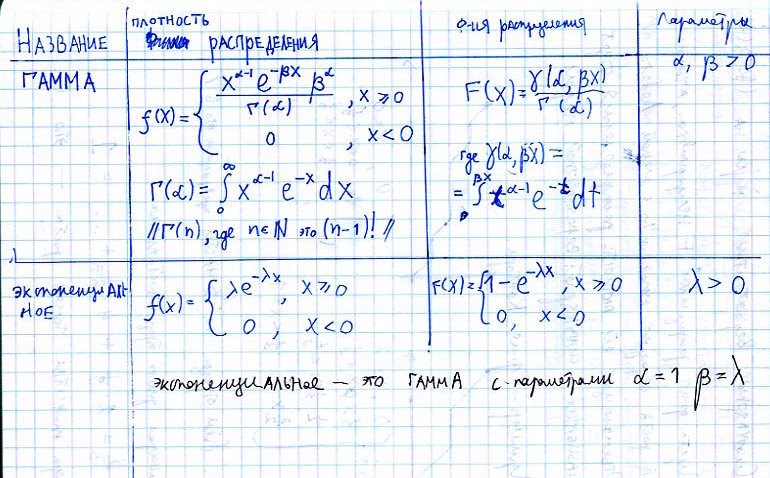 НАЗВАНИЕ
ПЛОТНОСТЬ
РАСПРЕДЕЛЕНИЯ
Ф-ия распределения
Параметры
ГАММА
f(x) = { x^{α-1} e^{-βx} β^α / Γ(α) , x ≥ 0
0 , x < 0
Γ(α) = ∫_0^∞ x^{α-1} e^{-x} dx
// Γ(n), где n∈ℕ это (n-1)! //
F(x) = γ(α, βx) / Γ(α)
где γ(α, βx) =
= ∫_0^{βx} t^{α-1} e^{-t} dt
α, β > 0
ЭКСПОНЕНЦИАЛЬ
НОЕ
f(x) = { λe^{-λx} , x ≥ 0
0 , x < 0
F(x) = { 1 - e^{-λx} , x ≥ 0
0, x < 0
λ > 0
ЭКСПОНЕНЦИАЛЬНОЕ — ЭТО ГАММА с параметрами α = 1 β = λ